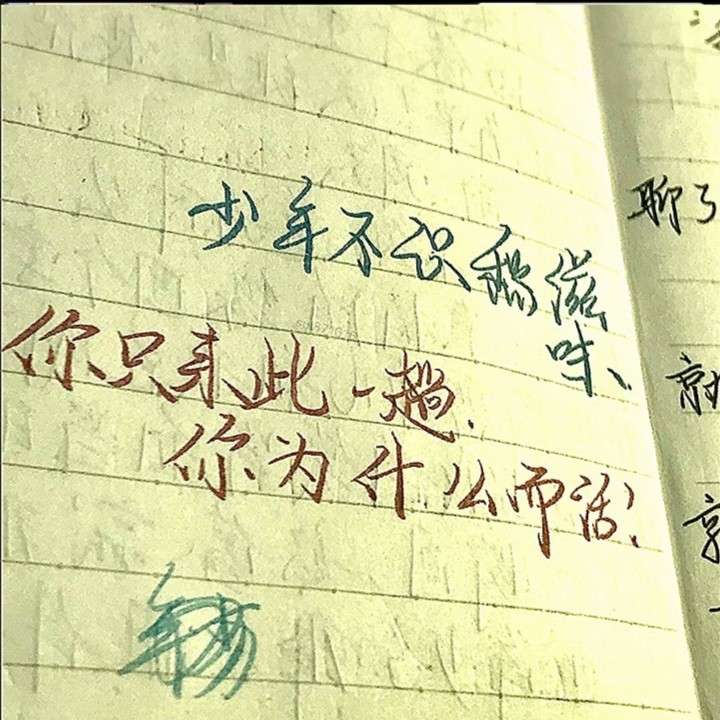 少年不识滋
味、
你只来此一趟.
你为什么而活?
聊了
就